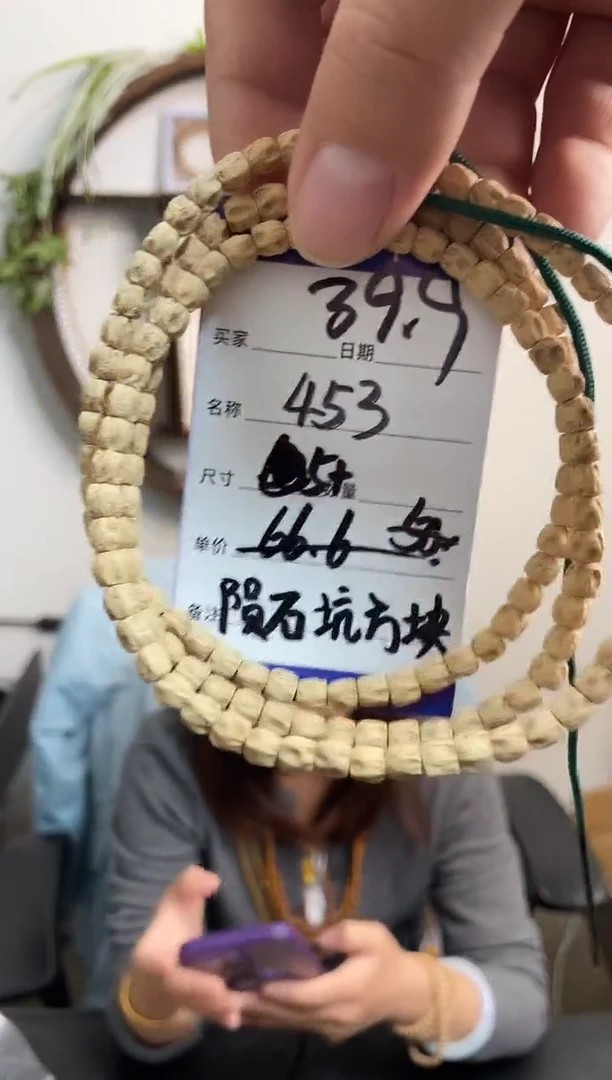 39.9
买家 日期
名称 453
尺寸 5+ 量
单价 66.6 58.
备注 陨石坑方块